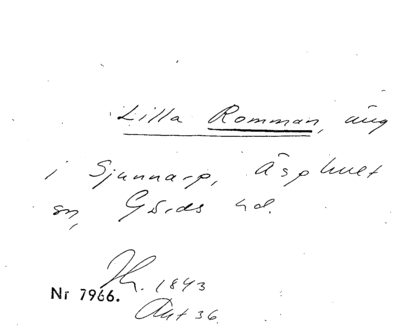 Lilla Romman, äng
i Sjunnarp, Äsphult
sn, Gärds hd.
Nr 7966. 1843
Akt 36.